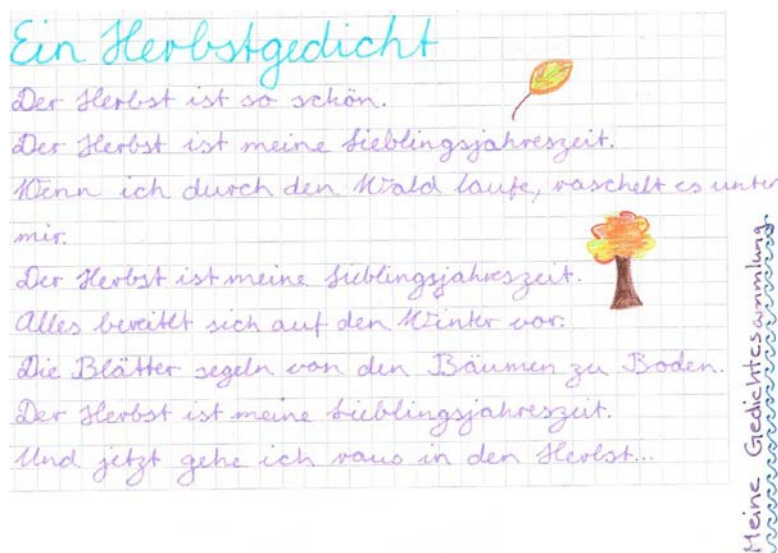 Ein Herbstgedicht
Der Herbst ist so schön.
Der Herbst ist meine Lieblingsjahreszeit.
Wenn ich durch den Wald laufe, raschelt es unter
mir.
Der Herbst ist meine Lieblingsjahreszeit.
Alles bereitet sich auf den Winter vor.
Die Blätter segeln von den Bäumen zu Boden.
Der Herbst ist meine Lieblingsjahreszeit.
Und jetzt gehe ich raus in den Herbst...
Meine Gedichtesammlung